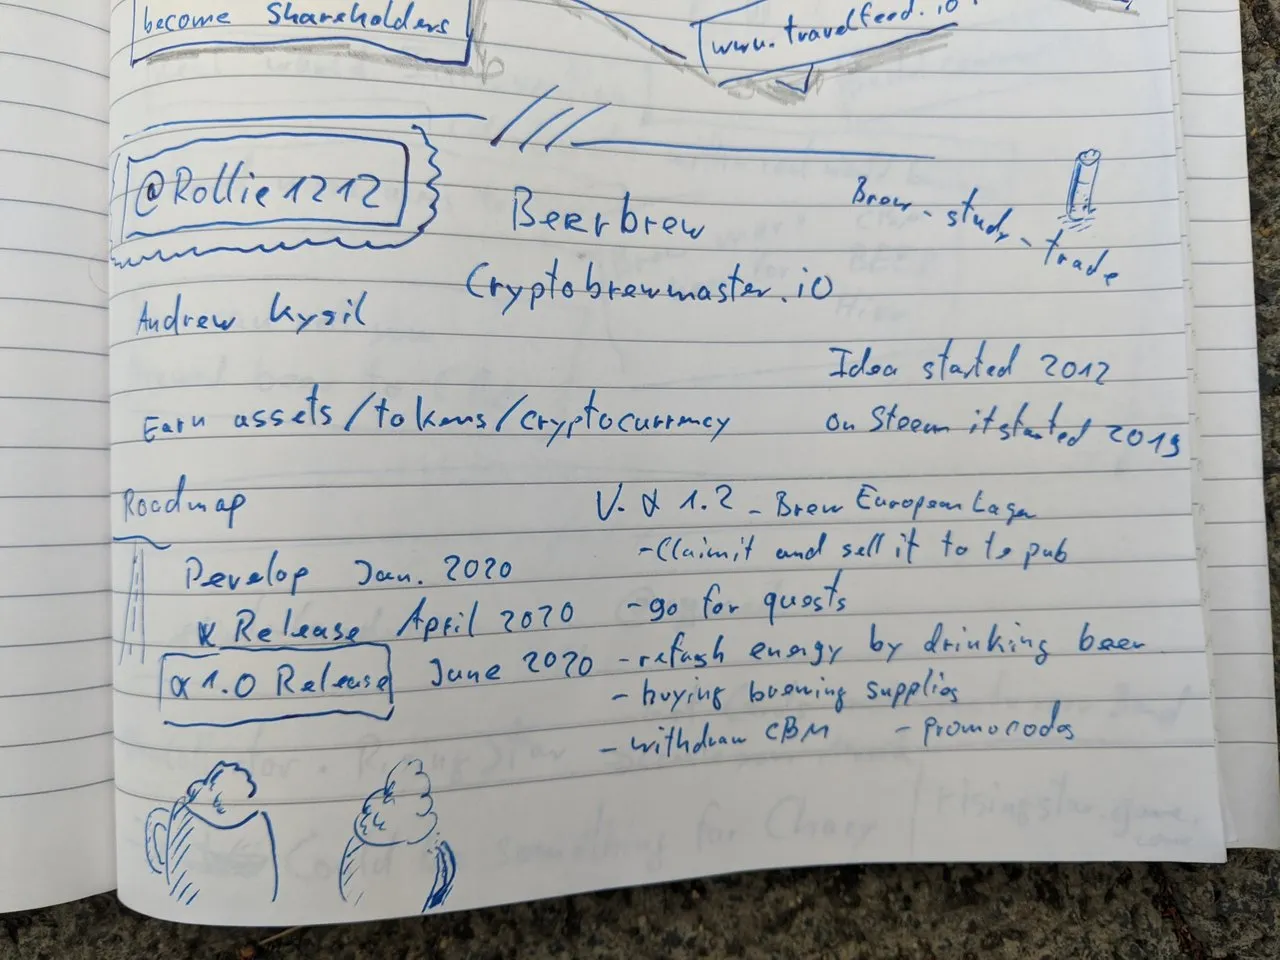 become Shareholders
www.travelfeed.io
@Rollie1212
Beerbrew
Brew - study - trade
Cryptobrewmaster.io
Andrew Kysil
Idea started 2012
Earn assets/tokens/cryptocurrency
on Steem it started 2019
Roadmap
V. α 1.2 - Brew European Lager
- Claim it and sell it to te pub
Develop Jan. 2020
Release April 2020
- go for quests
α 1.0 Release June 2020
- refresh energy by drinking beer
- buying brewing supplies
- withdraw CBM - promocodes